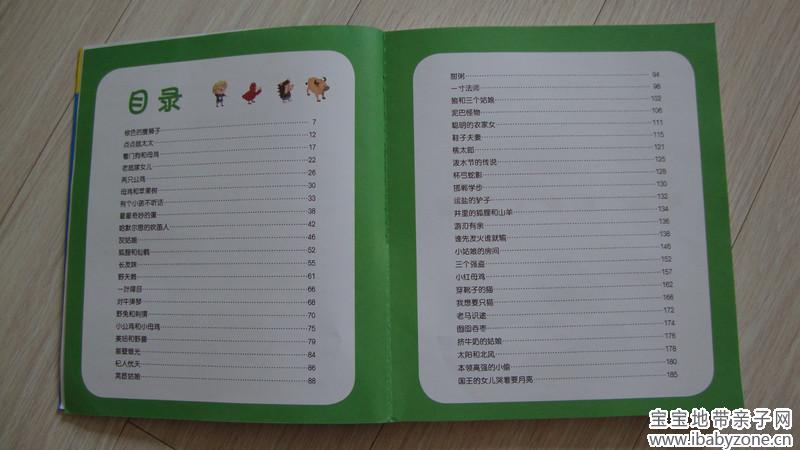 目录
棕色的魔狮子 7
点点鼠太太 12
看门狗和母鸡 17
老鼠嫁女儿 22
两只公鸡 26
母鸡和苹果树 30
有个小孩不听话 33
最最奇妙的蛋 38
哈默尔恩的吹笛人 42
灰姑娘 46
狐狸和仙鹤 52
长发妹 55
野天鹅 61
一叶障目 66
对牛弹琴 68
野兔和刺猬 70
小公鸡和小母鸡 75
美妞和野兽 79
凿壁偷光 84
杞人忧天 86
88
甜粥 94
一寸法师 98
熊和三个姑娘 102
泥巴怪物 106
聪明的农家女 111
鞋子夫妻 115
桃太郎 121
泼水节的传说 125
杯弓蛇影 128
邯郸学步 130
运盐的驴子 132
井里的狐狸和山羊 134
游刃有余 136
谁先发火谁就输 138
小姑娘的房间 146
三个强盗 152
小红母鸡 157
穿靴子的猫 162
我想要只猫 166
老马识途 172
囫囵吞枣 174
挤牛奶的姑娘 176
太阳和北风 178
本领高强的小偷 180
国王的女儿哭着要月亮 185
宝宝地带亲子网
www.ibabyzone.cn